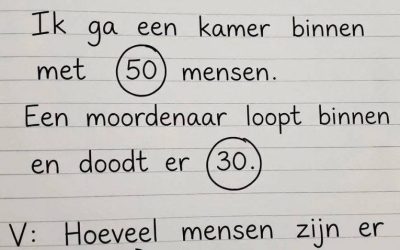 Ik ga een kamer binnen
met 50 mensen.
Een moordenaar loopt binnen
en doodt er 30.
V: Hoeveel mensen zijn er